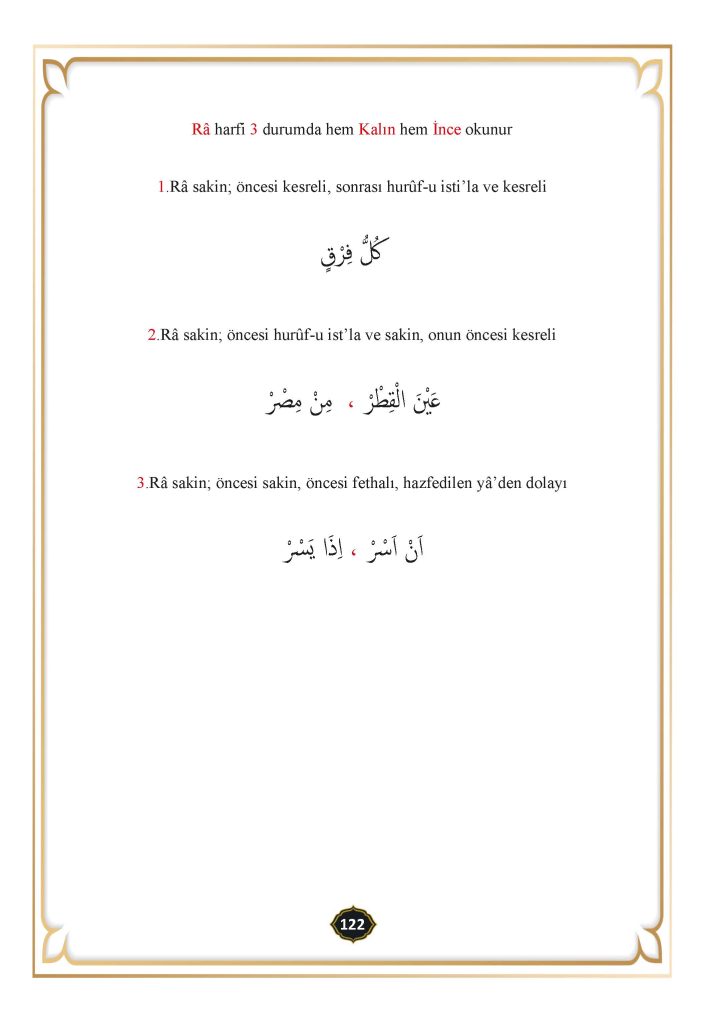 Râ harfi 3 durumda hem Kalın hem İnce okunur
1.Râ sakin; öncesi kesreli, sonrası hurûf-u isti’la ve kesreli
كُلُّ فِرْقٍ
2.Râ sakin; öncesi hurûf-u ist’la ve sakin, onun öncesi kesreli
عَيْنَ الْقِطْرْ ، مِنْ مِصْرْ
3.Râ sakin; öncesi sakin, öncesi fethalı, hazfedilen yâ’den dolayı
اَنْ اَسْرْ ، اِذَا يَسْرْ
122